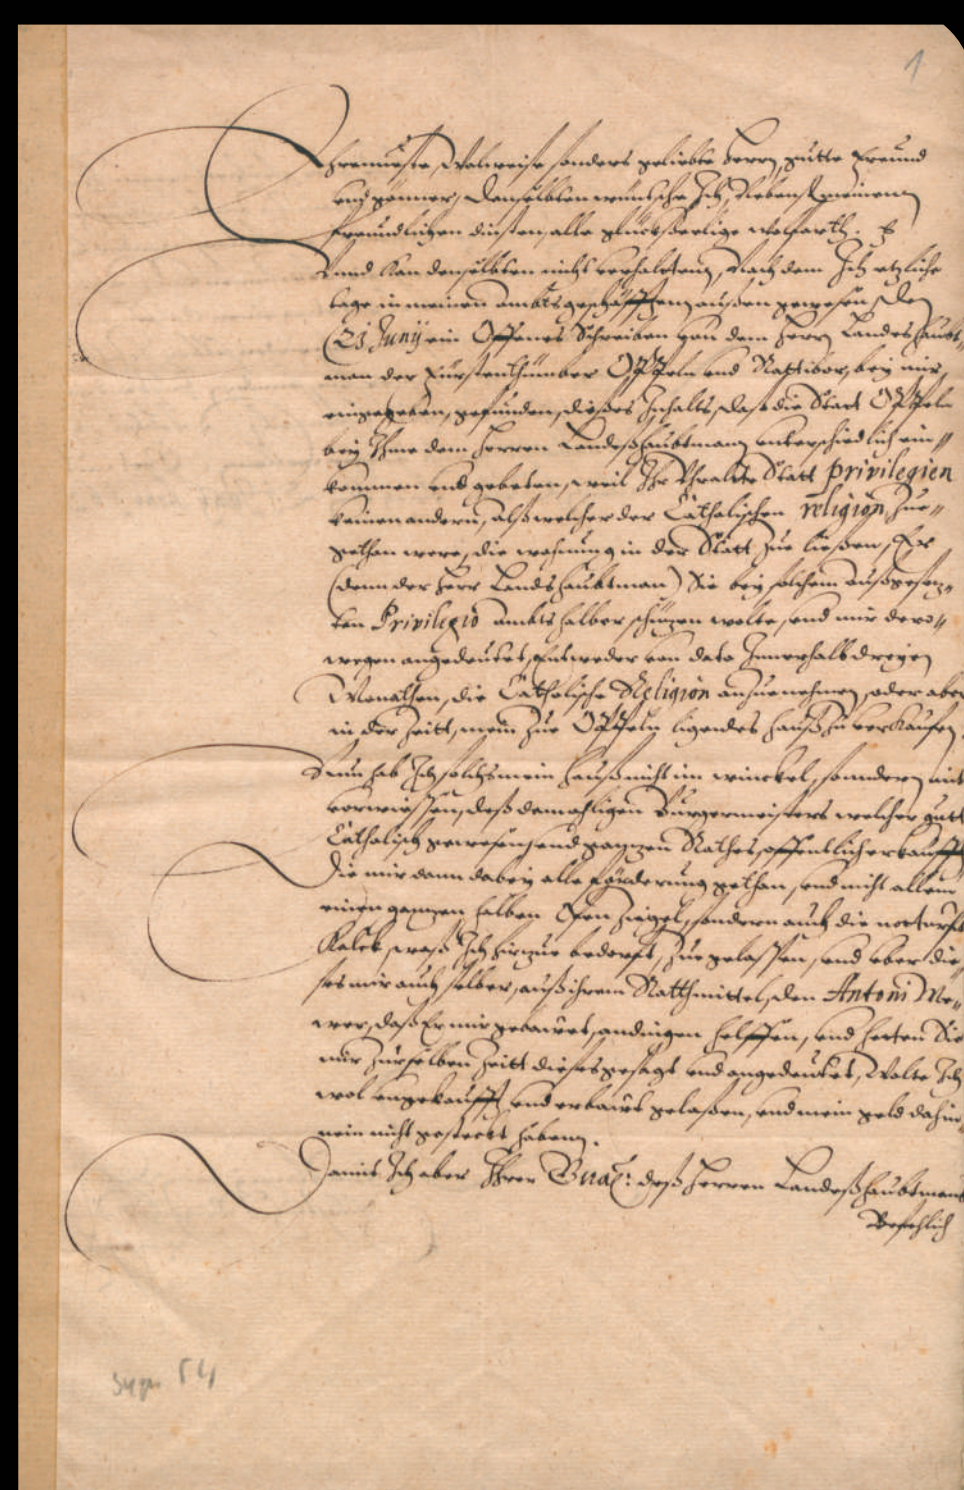 1
Ehrenueste, Wolweise sonders geliebte Herrn, gutte Freund
und gönner, Denselbten wüntsche Ich, Nebenst meinenn
freundlichen dinsten, alle glückseelige wolfarth.
Vnnd kan denselbten nicht verhaltenn, Nach dem Ich etzliche
tage in meinen ambtsgeschäfftenn außen gewesen, den
23 Junij ein Offenes Schreiben von dem Herrn Landeshaubt-
man der Fürstenthümber Oppeln vnd Rattibor, bey mir
eingegeben, gefunden, dieses Inhalts, daß die Stadt Oppeln
bey Ihme dem Herren Landeßhaubtmann vnterschiedlich ein-
kommen vnd gebeten, weil Ihr Vhralte Stadt privilegien
keinen andern, alß welcher der Catholischen religion, zue-
gethan were, die wohnung in der Stadt zue ließen, Er
(denn der Herr Landshaubtman) Sie bey solchem außgesetz-
ten Privilegio ambts halber schüzen wolte, vnd mir dero-
wegen angedeutet, Entweder von dato Innerhalb dreyen
Monathen, die Catholische Religion anzuenehmen, oder aber
in der Zeitt, mein zue Oppeln ligendes Hauß zu verkaufen.
Nun hab Ich solches mein hauß nicht im winckel, sondern mit
vorwissen, deß damahligen Bürgermeisters welcher gutt
Catholisch gewesen, vnd ganzen Rathes, offentlich erkaufft
Die mir dann dabey alle föderung gethan, vnd nicht allein
einen ganzen halben Ofen ziegel, sondern auch die notturfft
Kalck, waß Ich hirzue bedorfft, zue gelassen, vnd vber die-
ses mir auch selber, auß ihrem Rathmittel, den Antoni Me-
wer, daß Er mir gebawet, andingen helffen, vnd hetten Sie
mir zur selben Zeitt dieses gesagt vnd angedeutet, Wolte Ich
wol vngekaufft vnd vnerbawt gelaßen, vnd mein geld dahin-
nein nicht gesteckt habenn.
Damit Ich aber Ihrer Gnad: deß Herren Landeßhaubtmans
Befehlich
54